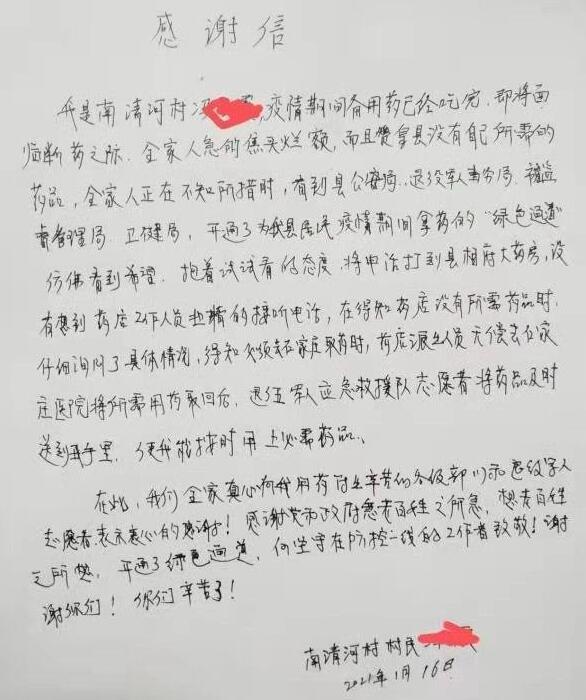 感谢信
我是南清河村冯 疫情期间备用药已经吃完,即将面
临断药之际,全家人急的焦头烂额,而且赞皇县没有自己所需的
药品,全家人正在不知所措时,看到县公安局、退役军人事务局、
管理局、卫健局,开通了为我县居民疫情期间拿药的“绿色通道”
仿佛看到希望,抱着试试看的态度,将电话打到县相府大药房,没
有想到药店工作人员热情的接听电话,在得知药店没有所需药品时,
仔细询问了具体情况,得知必须去石家庄取药时,药店派人员无偿去石家
庄医院将所需用药取回后,退伍军人应急救援队志愿者将药品及时
送到我手里,使我能按时用上必需药品。
在此,我们全家真心向我用药付出辛苦的各级部门和退役军人
志愿者表示衷心的感谢!感谢党和政府急老百姓之所急,想老百姓
之所想,开通了绿色通道,向坚守在防控一线的工作者致敬!谢
谢你们!你们辛苦了!
南清河村村民
2021年1月16日